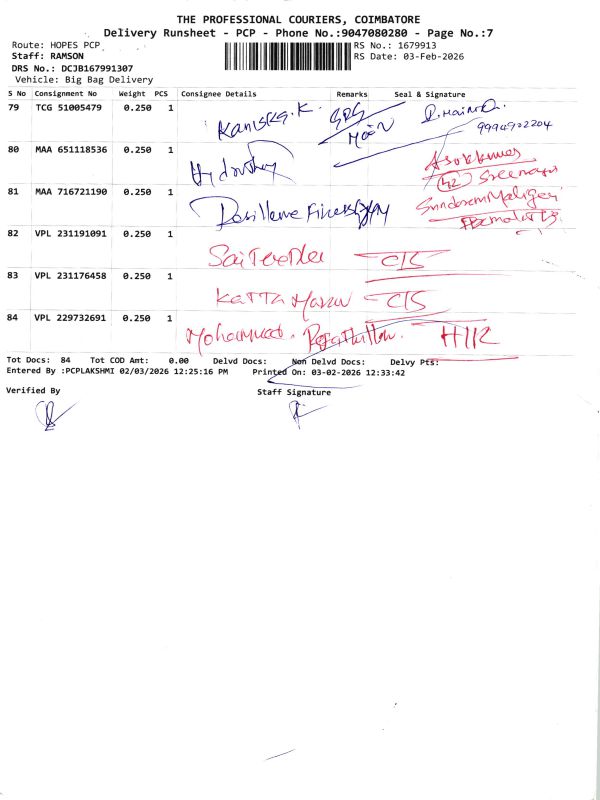 THE PROFESSIONAL COURIERS, COIMBATORE
Delivery Runsheet - PCP - Phone No.:9047080280 - Page No.:7
Route: HOPES PCP RS No.: 1679913
Staff: RAMSON RS Date: 03-Feb-2026
DRS No.: DCJB167991307
Vehicle: Big Bag Delivery
S No Consignment No Weight PCS Consignee Details Remarks Seal & Signature
79 TCG 51005479 0.250 1 Kaniska.K
9994902204
80 MAA 651118536 0.250 1
42 Sreenagar
81 MAA 716721190 0.250 1
82 VPL 231191091 0.250 1 C/S
83 VPL 231176458 0.250 1 KATTA C/S
84 VPL 229732691 0.250 1
Tot Docs: 84 Tot COD Amt: 0.00 Delvd Docs: Non Delvd Docs: Delvy Pts:
Entered By :PCPLAKSHMI 02/03/2026 12:25:16 PM Printed On: 03-02-2026 12:33:42
Verified By Staff Signature